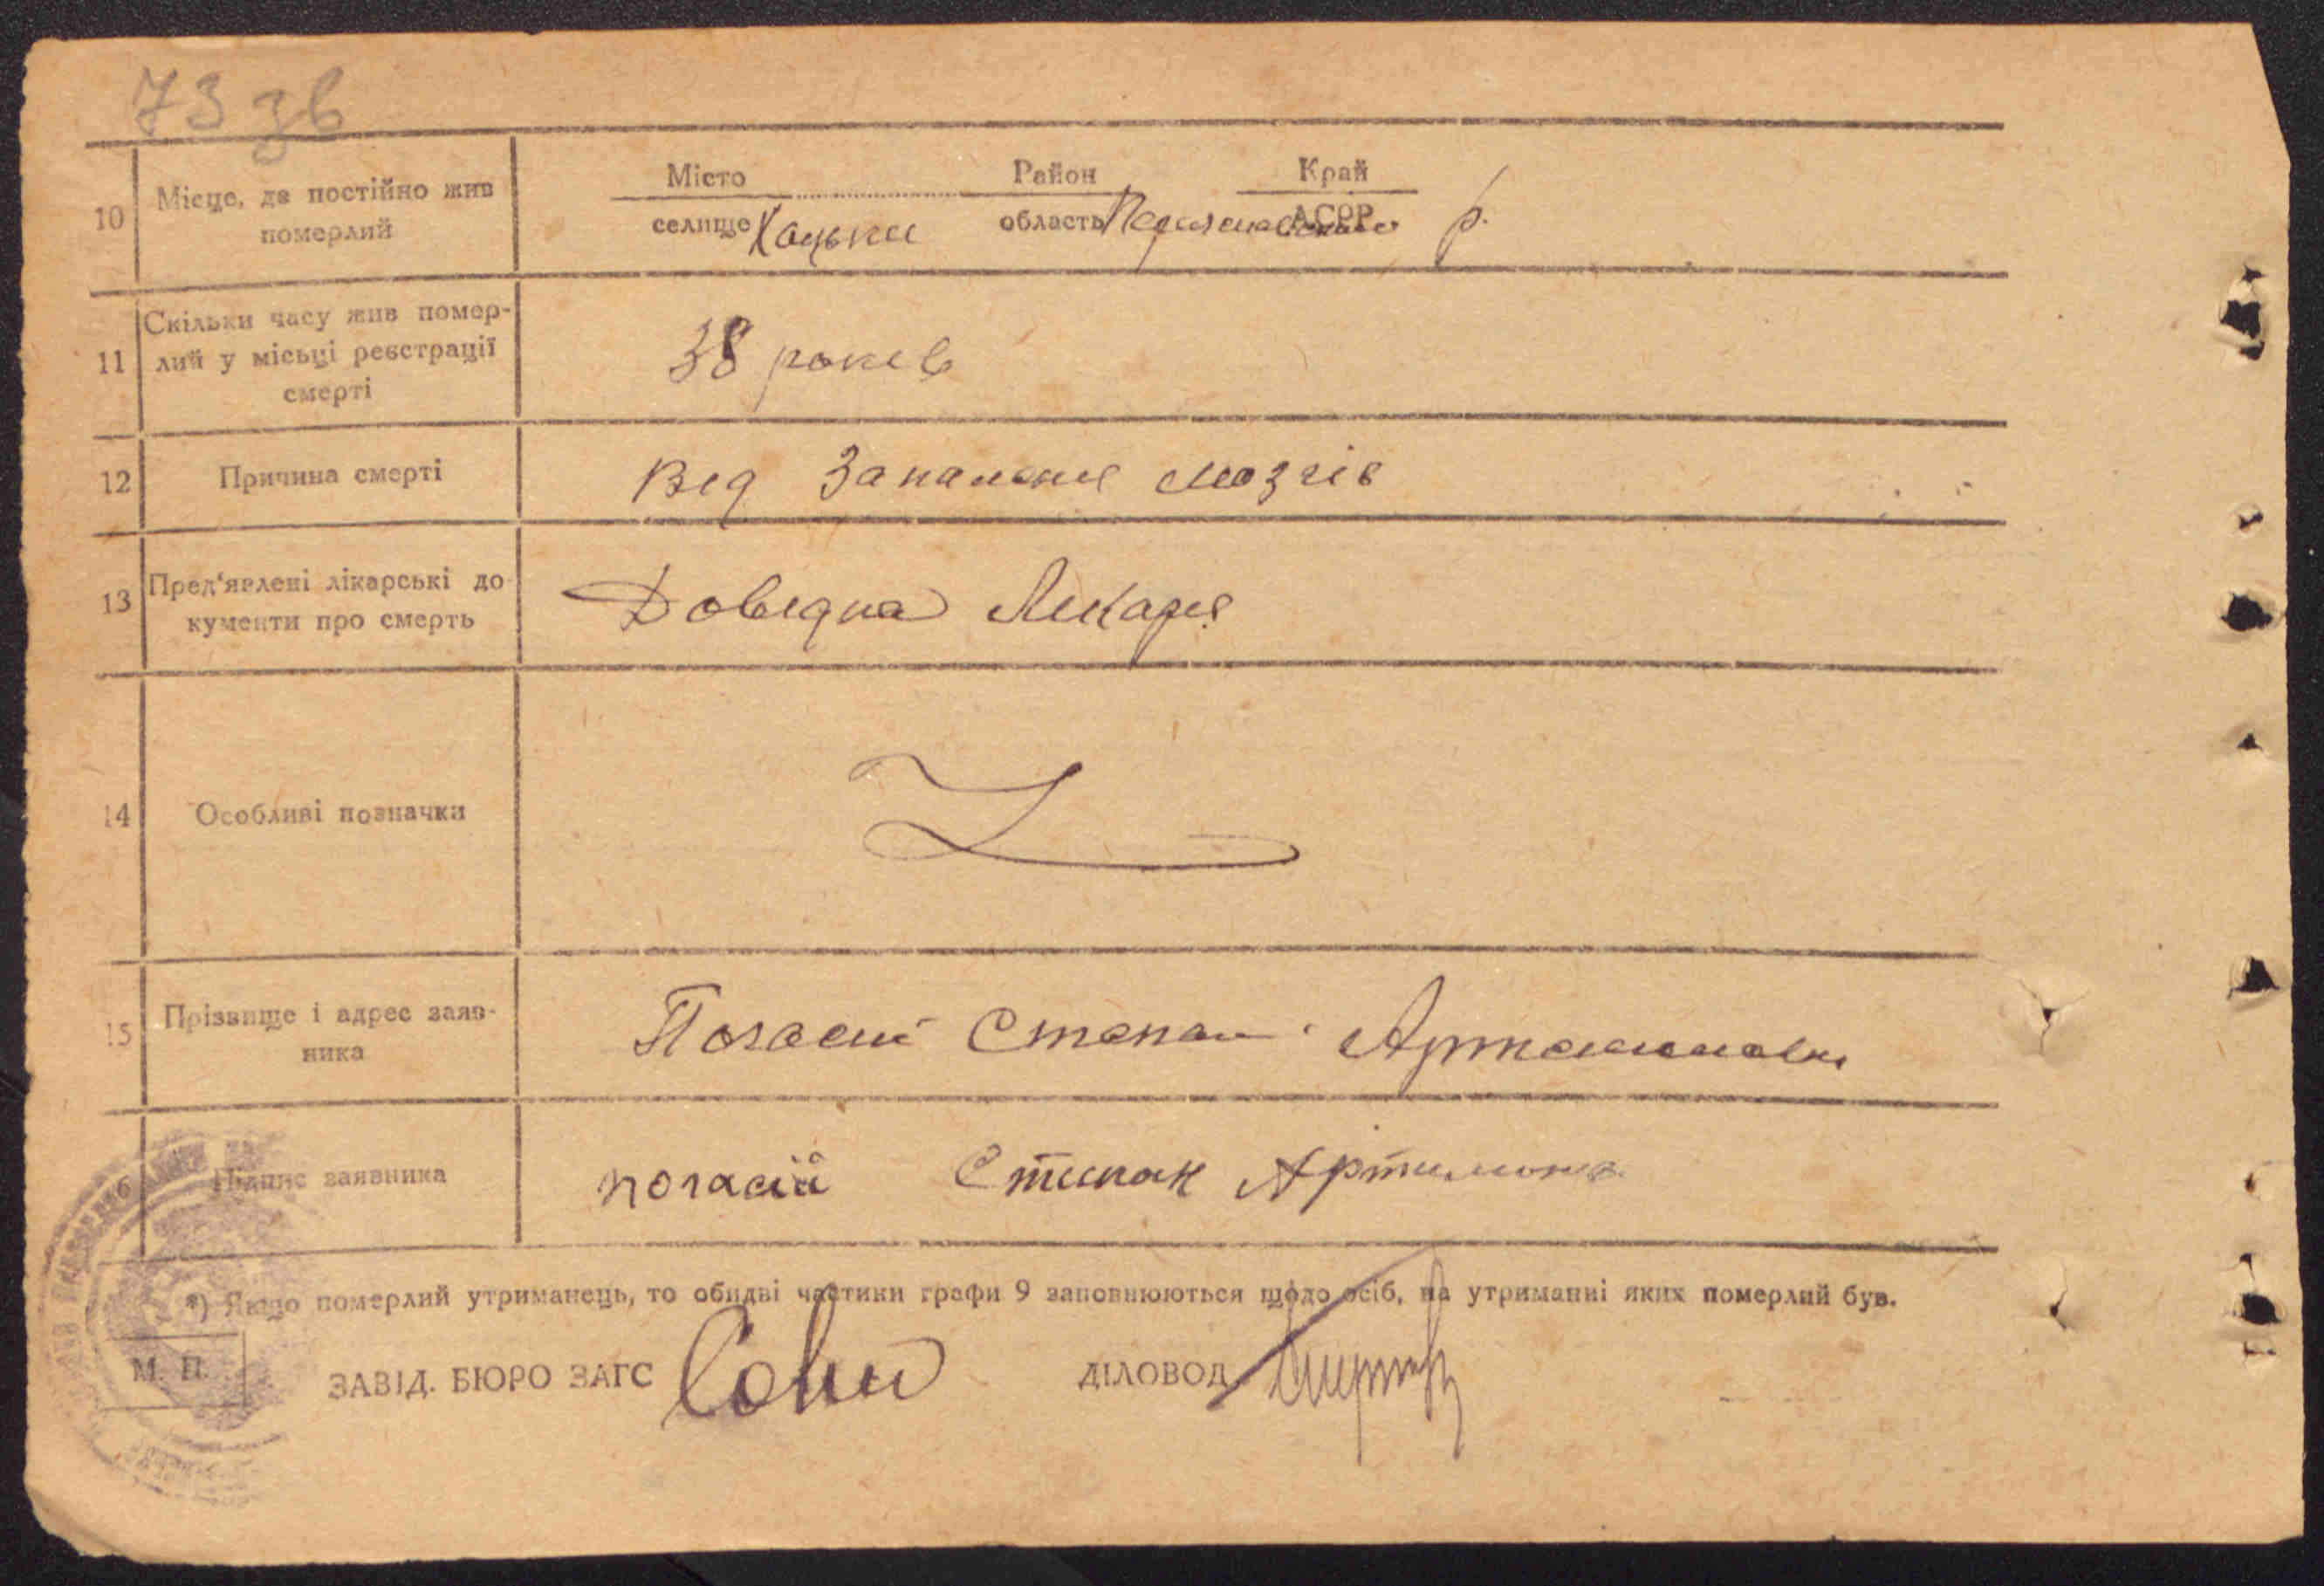 73 зв
10 Місце, де постійно жив
померлий
Місто Район Край
селище Хацьки область АСРР р.
11 Скільки часу жив помер-
лий у місьці реєстрації
смерті
38 років
12 Причина смерті Від Запаленя мозгів
13 Пред'явлені лікарські до
кументи про смерть
Довідка Лікаря
14 Особливі позначки
15 Прізвище і адрес заяв-
ника
Погасій Степан
Підпис заявника погасій Степан
*) Якщо померлий утриманець, то обидві частини графи 9 заповнюються щодо осіб, на утриманні яких померлий був.
М. П. ЗАВІД. БЮРО ЗАГС ДІЛОВОД